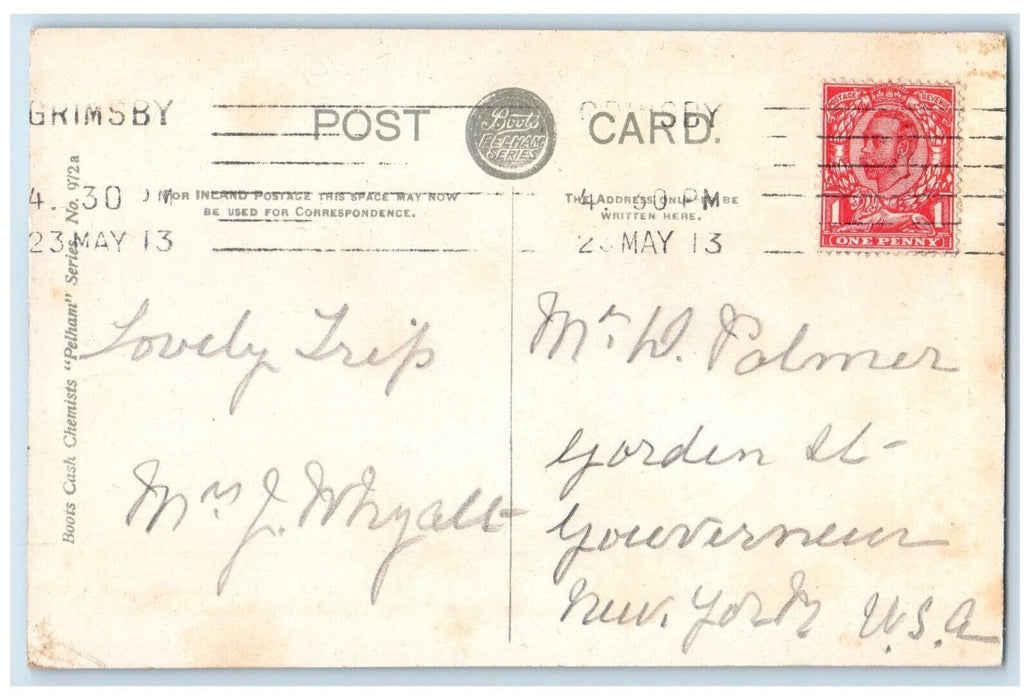 GRIMSBY
4. 30 PM
23 MAY 13
POST CARD.
Boots
PELHAM
SERIES
GRIMSBY
4. 30 PM
23 MAY 13
POSTAGE REVENUE
1 1
ONE PENNY
FOR INLAND POSTAGE THIS SPACE MAY NOW
BE USED FOR CORRESPONDENCE.
THE ADDRESS ONLY TO BE
WRITTEN HERE.
Boots Cash Chemists "Pelham" Series No. 972a
Lovely Trip
Mrs J. Whyatt
Mr W. Palmer
Gorden St
Gouverneur
New York U.S.A